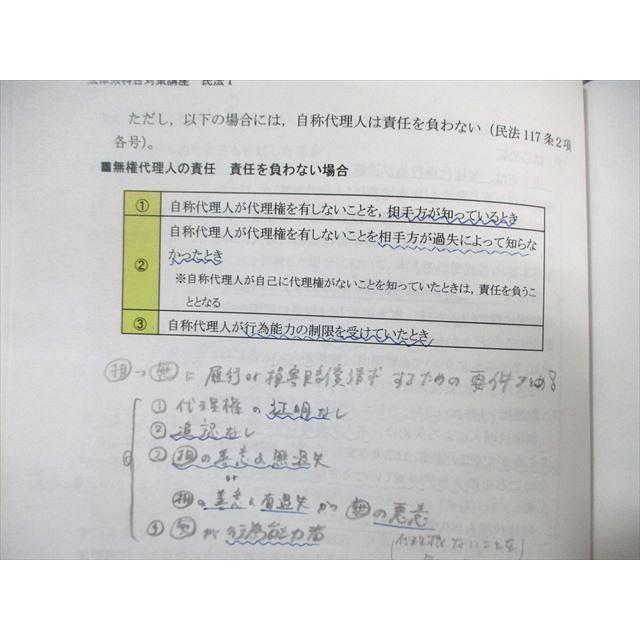 法律系科目対策講座 民法Ⅰ
ただし，以下の場合には，自称代理人は責任を負わない（民法117条2項
各号）。
■無権代理人の責任　責任を負わない場合
① 自称代理人が代理権を有しないことを，相手方が知っているとき
② 自称代理人が代理権を有しないことを相手方が過失によって知らな
かったとき
※自称代理人が自己に代理権がないことを知っていたときは，責任を負うこ
ととなる
③ 自称代理人が行為能力の制限を受けていたとき
相→無に履行or損害賠償請求するための要件
① 代理権の証明なし
② 追認なし
③ 相の善意＆無過失
or
相の善意＆有過失かつ無の悪意
④ 無が行為能力者
代理権ないことを